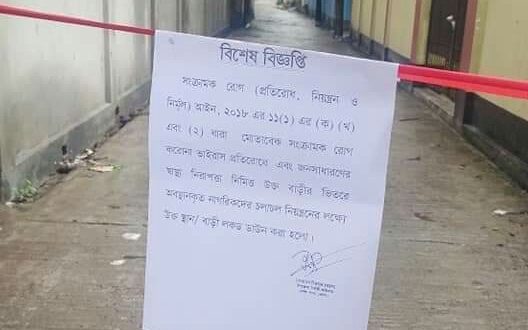 বিশেষ বিজ্ঞপ্তি
সংক্রামক রোগ (প্রতিরোধ, নিয়ন্ত্রন ও
নির্মূল) আইন, ২০১৮ এর ১১(১) এর (ক) (খ)
এবং (২) ধারা মোতাবেক সংক্রামক রোগ
করোনা ভাইরাস প্রতিরোধে এবং জনসাধারণের
স্বাস্থ্য নিরাপত্তা নিমিত্ত উক্ত বাড়ীর ভিতরে
অবস্থানকৃত নাগরিকদের চলাচল নিয়ন্ত্রনের লক্ষ্যে
উক্ত স্থান/ বাড়ী লকড ডাউন করা হলো।